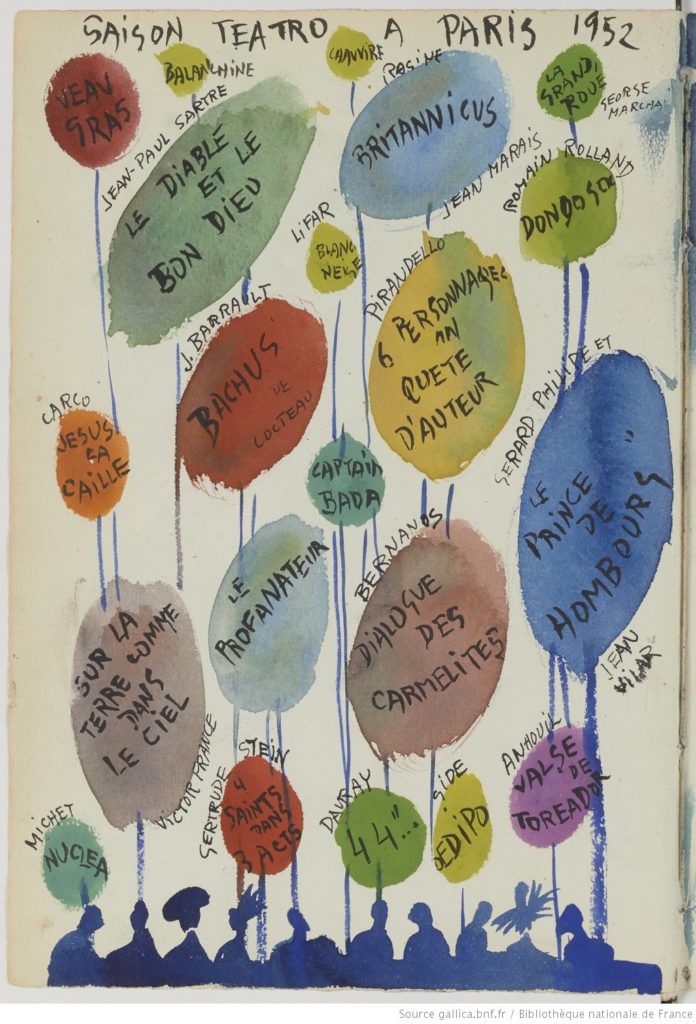 SAISON TEATRO A PARIS 1952
JEAN
GRAS
BALANCHINE
CHAUVIRE
RASINE
BRITANNICUS
JEAN MARAIS
LA
GRAND,
ROUE
GEORGE
MARCHA
JEAN-PAUL SARTRE
LE DIABLE
ET LE
BON DIEU
LIFAR
BLANC
NEIGE
ROMAIN ROLLAND
PIRANDELLO
6 PERSONNAGES
AN
QUETE
D'AUTEUR
J. BARRAULT
BACHUS
DE
COCTEAU
GERARD PHILIPE ET
LE
PRINCE
DE
HOMBOURG
JEAN
VILAR
CARCO
JESUS
LA
CAILLE
CAPTAIN
BADA
LE
PROFANATEUR
BERNANOS
DIALOGUE
DES
CARMELITES
SUR LA
TERRE COMME
DANS
LE CIEL
VICTOR FRANCE
GERTRUDE STEIN
4
SAINTS
DANS
3 ACTS
DAVRAY
44"...
GIDE
OEDIPO
ANHOUIL
VALSE
DE
TOREADOR
MICHET
NUCLEA
Source gallica.bnf.fr / Bibliothèque nationale de France